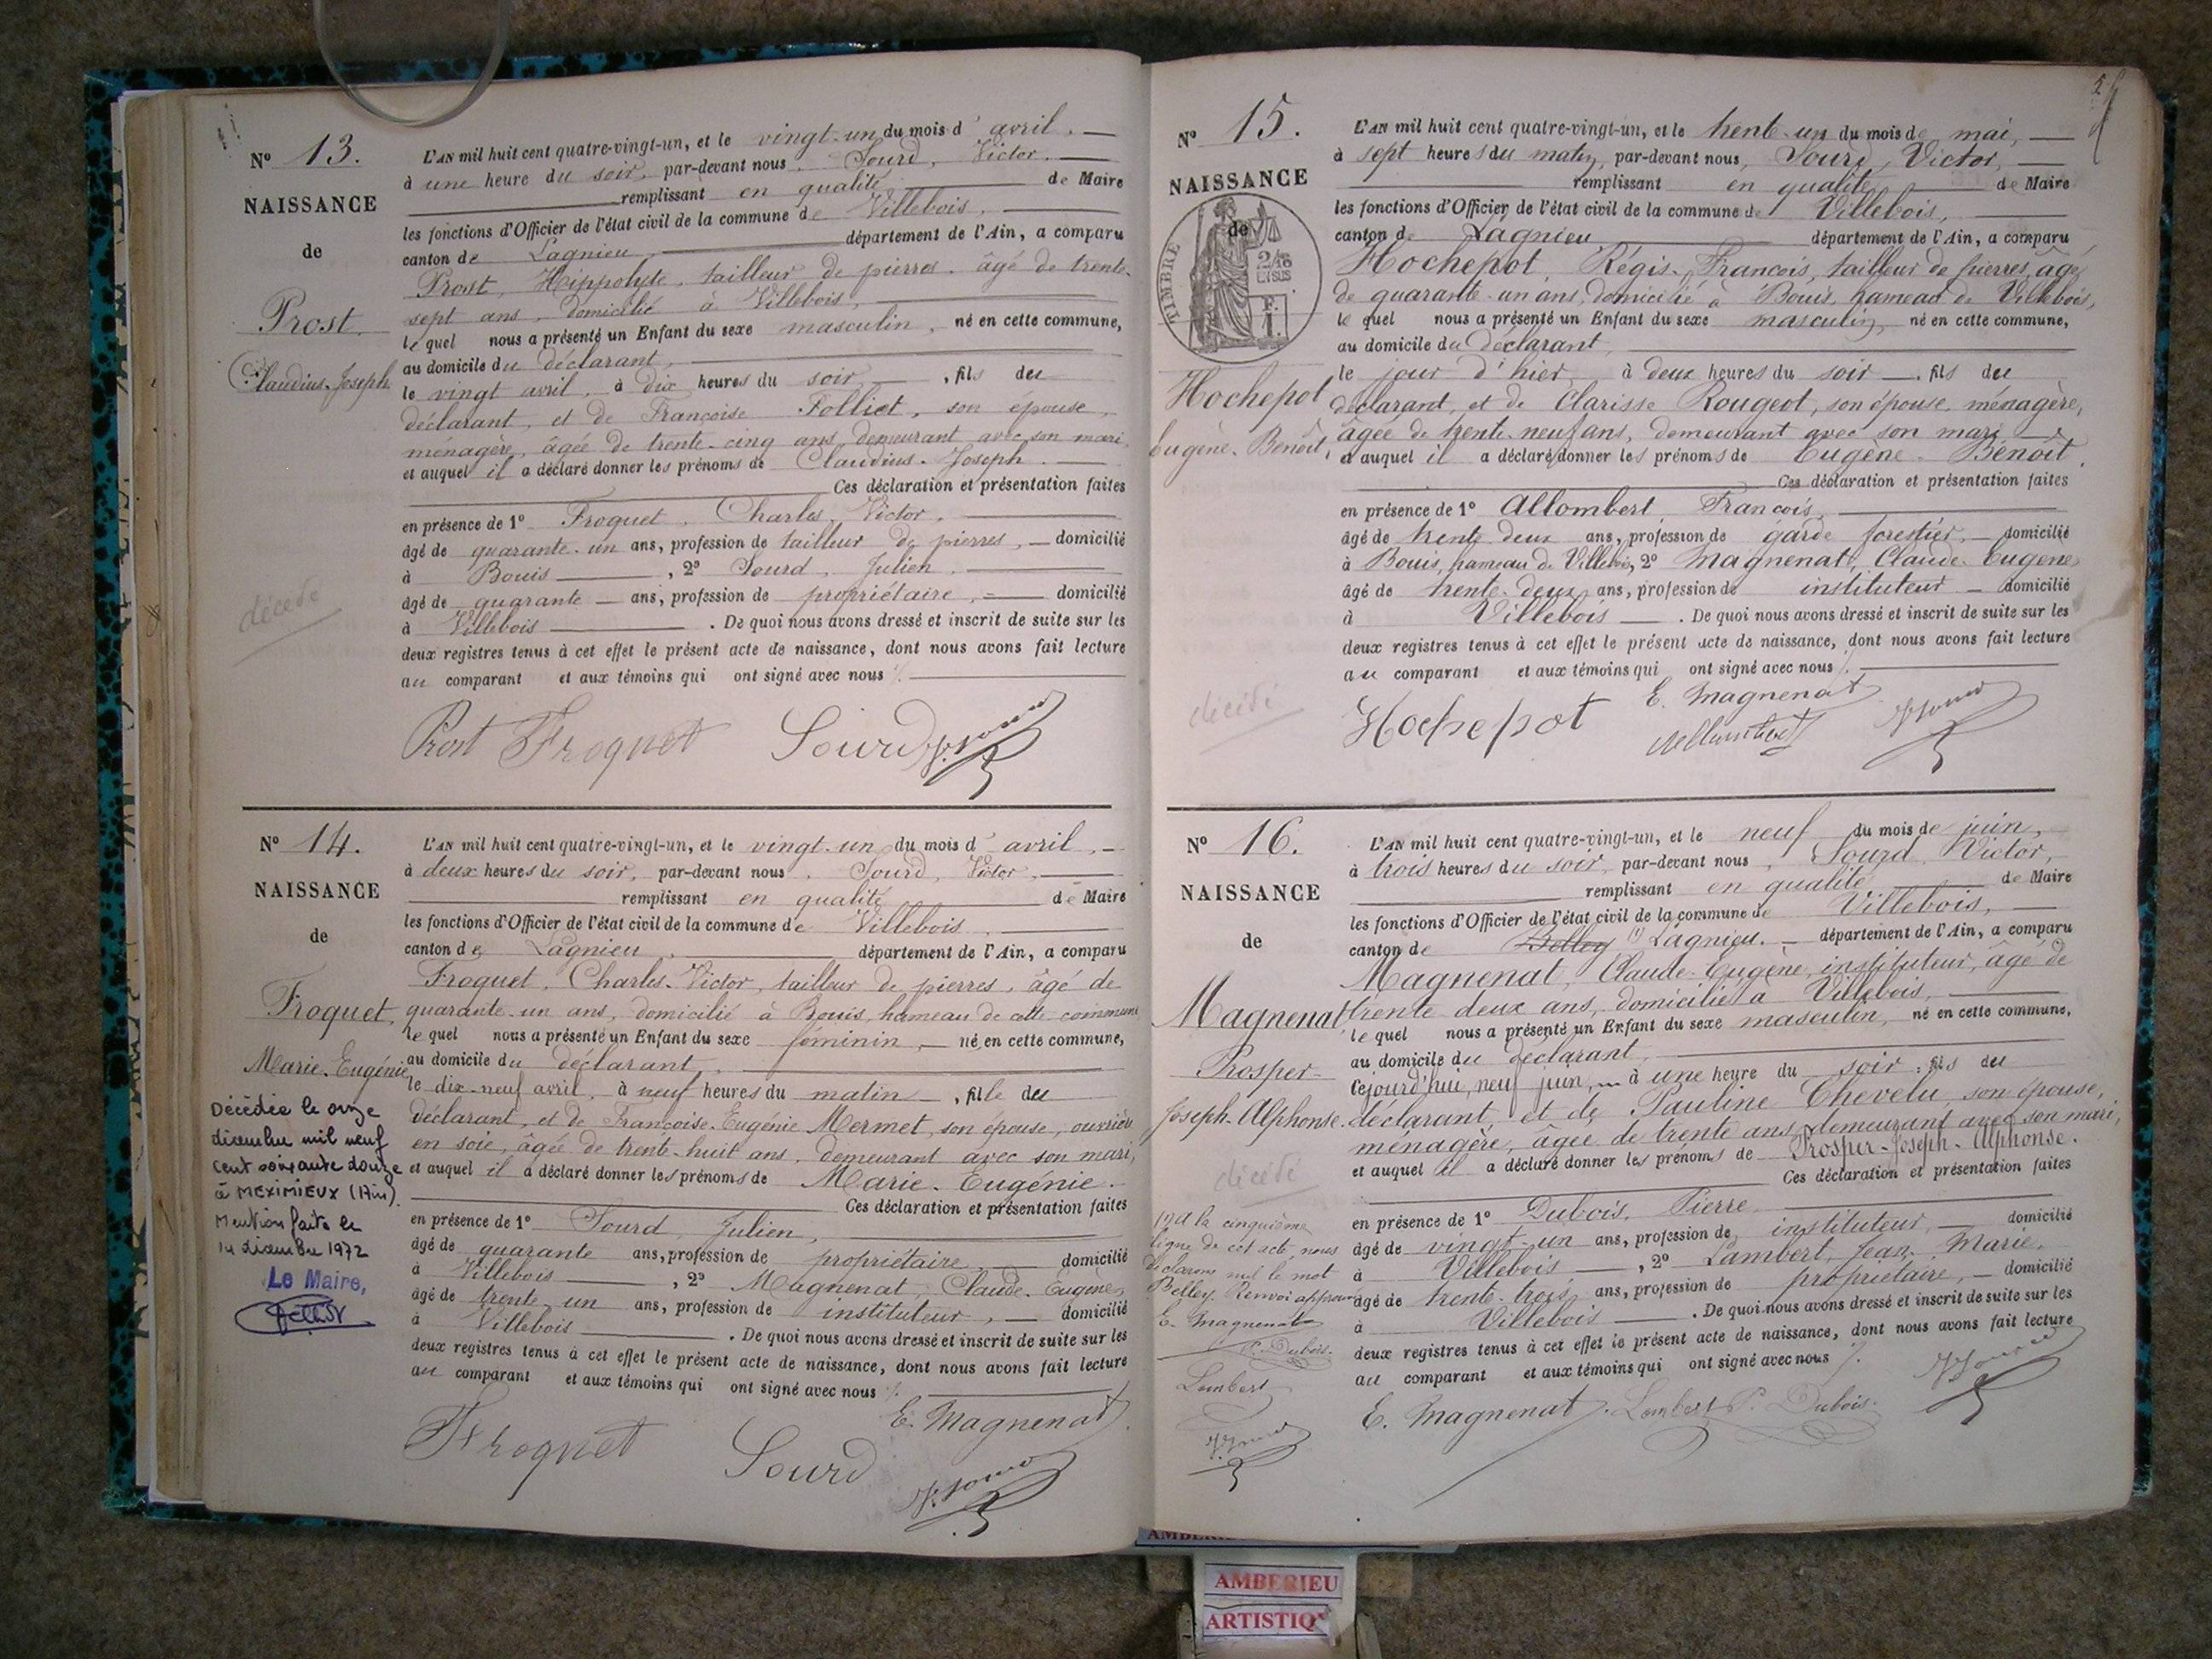 N° 13.
NAISSANCE
de
Prost
Claudius-Joseph
décédé
L'AN mil huit cent quatre-vingt-un, et le vingt-un du mois d'avril,
à une heure du soir, par-devant nous, Sourd, Victor,
remplissant en qualité de Maire
les fonctions d'Officier de l'état civil de la commune de Villebois,
canton de Lagnieu, département de l'Ain, a comparu
Prost, Hippolyte, tailleur de pierres, âgé de trente-
sept ans, domicilié à Villebois,
lequel nous a présenté un Enfant du sexe masculin, né en cette commune,
au domicile du déclarant,
le vingt avril, à dix heures du soir, fils du
déclarant, et de Françoise Folliet, son épouse,
ménagère, âgée de trente-cinq ans, demeurant avec son mari,
et auquel il a déclaré donner les prénoms de Claudius-Joseph.
Ces déclaration et présentation faites
en présence de 1° Froquet, Charles-Victor,
âgé de quarante-un ans, profession de tailleur de pierres, domicilié
à Bouis, 2° Sourd, Julien,
âgé de quarante ans, profession de propriétaire, domicilié
à Villebois. De quoi nous avons dressé et inscrit de suite sur les
deux registres tenus à cet effet le présent acte de naissance, dont nous avons fait lecture
au comparant et aux témoins qui ont signé avec nous.
Prost Froquet Sourd V. Sourd
N° 14.
NAISSANCE
de
Froquet,
Marie-Eugénie
Décédée le onze
décembre mil neuf
cent soixante douze
à MEXIMIEUX (Ain).
Mention faite le
14 décembre 1972
Le Maire,
L'AN mil huit cent quatre-vingt-un, et le vingt-un du mois d'avril,
à deux heures du soir, par-devant nous, Sourd, Victor,
remplissant en qualité de Maire
les fonctions d'Officier de l'état civil de la commune de Villebois,
canton de Lagnieu, département de l'Ain, a comparu
Froquet, Charles-Victor, tailleur de pierres, âgé de
quarante-un ans, domicilié à Bouis, hameau de cette commune
lequel nous a présenté un Enfant du sexe féminin, né en cette commune,
au domicile du déclarant,
le dix-neuf avril, à neuf heures du matin, fille du
déclarant, et de Françoise-Eugénie Mermet, son épouse, ouvrière
en soie, âgée de trente-huit ans, demeurant avec son mari,
et auquel il a déclaré donner les prénoms de Marie-Eugénie.
Ces déclaration et présentation faites
en présence de 1° Sourd, Julien,
âgé de quarante ans, profession de propriétaire domicilié
à Villebois, 2° Magnenat, Claude-Eugène,
âgé de trente-un ans, profession de instituteur, domicilié
à Villebois. De quoi nous avons dressé et inscrit de suite sur les
deux registres tenus à cet effet le présent acte de naissance, dont nous avons fait lecture
au comparant et aux témoins qui ont signé avec nous.
E. Magnenat
Froquet Sourd V. Sourd
N° 15.
NAISSANCE
de
TIMBRE
2/10
EN SUS
F.
1.
Hochepot
Eugène-Benoît,
décédé
L'AN mil huit cent quatre-vingt-un, et le trente-un du mois de mai,
à sept heures du matin, par-devant nous, Sourd, Victor,
remplissant en qualité de Maire
les fonctions d'Officier de l'état civil de la commune de Villebois,
canton de Lagnieu département de l'Ain, a comparu
Hochepot, Régis-François, tailleur de pierres, âgé
de quarante-un ans, domicilié à Bouis, hameau de Villebois,
lequel nous a présenté un Enfant du sexe masculin, né en cette commune,
au domicile du déclarant,
le jour d'hier, à deux heures du soir, fils du
déclarant, et de Clarisse Rougeot, son épouse, ménagère,
âgée de trente-neuf ans, demeurant avec son mari
et auquel il a déclaré donner les prénoms de Eugène-Benoît.
Ces déclaration et présentation faites
en présence de 1° Allombert, François,
âgé de trente-deux ans, profession de garde forestier, domicilié
à Bouis, hameau de Villebois, 2° Magnenat, Claude-Eugène,
âgé de trente-deux ans, profession de instituteur domicilié
à Villebois. De quoi nous avons dressé et inscrit de suite sur les
deux registres tenus à cet effet le présent acte de naissance, dont nous avons fait lecture
au comparant et aux témoins qui ont signé avec nous.
Hochepot E. Magnenat Allombert V. Sourd
N° 16.
NAISSANCE
de
Magnenat
Prosper-
Joseph-Alphonse.
décédé
(1) A la cinquième
ligne de cet acte, nous
déclarons nul le mot
Belley. Renvoi approuvé
E. Magnenat
P. Dubois.
Lambert
V. Sourd
L'AN mil huit cent quatre-vingt-un, et le neuf du mois de juin,
à trois heures du soir, par-devant nous, Sourd, Victor,
remplissant en qualité de Maire
les fonctions d'Officier de l'état civil de la commune de Villebois,
canton de Belley (1) Lagnieu. département de l'Ain, a comparu
Magnenat, Claude-Eugène, instituteur, âgé de
trente-deux ans, domicilié à Villebois,
lequel nous a présenté un Enfant du sexe masculin, né en cette commune,
au domicile du déclarant,
cejourd'hui, neuf juin, à une heure du soir, fils du
déclarant et de Pauline Chevelu, son épouse,
ménagère, âgée de trente ans, demeurant avec son mari,
et auquel il a déclaré donner les prénoms de Prosper-Joseph-Alphonse.
Ces déclaration et présentation faites
en présence de 1° Dubois, Pierre
âgé de vingt-un ans, profession de instituteur, domicilié
à Villebois, 2° Lambert, Jean-Marie,
âgé de trente-trois ans, profession de propriétaire, domicilié
à Villebois. De quoi nous avons dressé et inscrit de suite sur les
deux registres tenus à cet effet le présent acte de naissance, dont nous avons fait lecture
au comparant et aux témoins qui ont signé avec nous.
E. Magnenat. Lambert P. Dubois. V. Sourd
AMBERIEU
ARTISTIQ